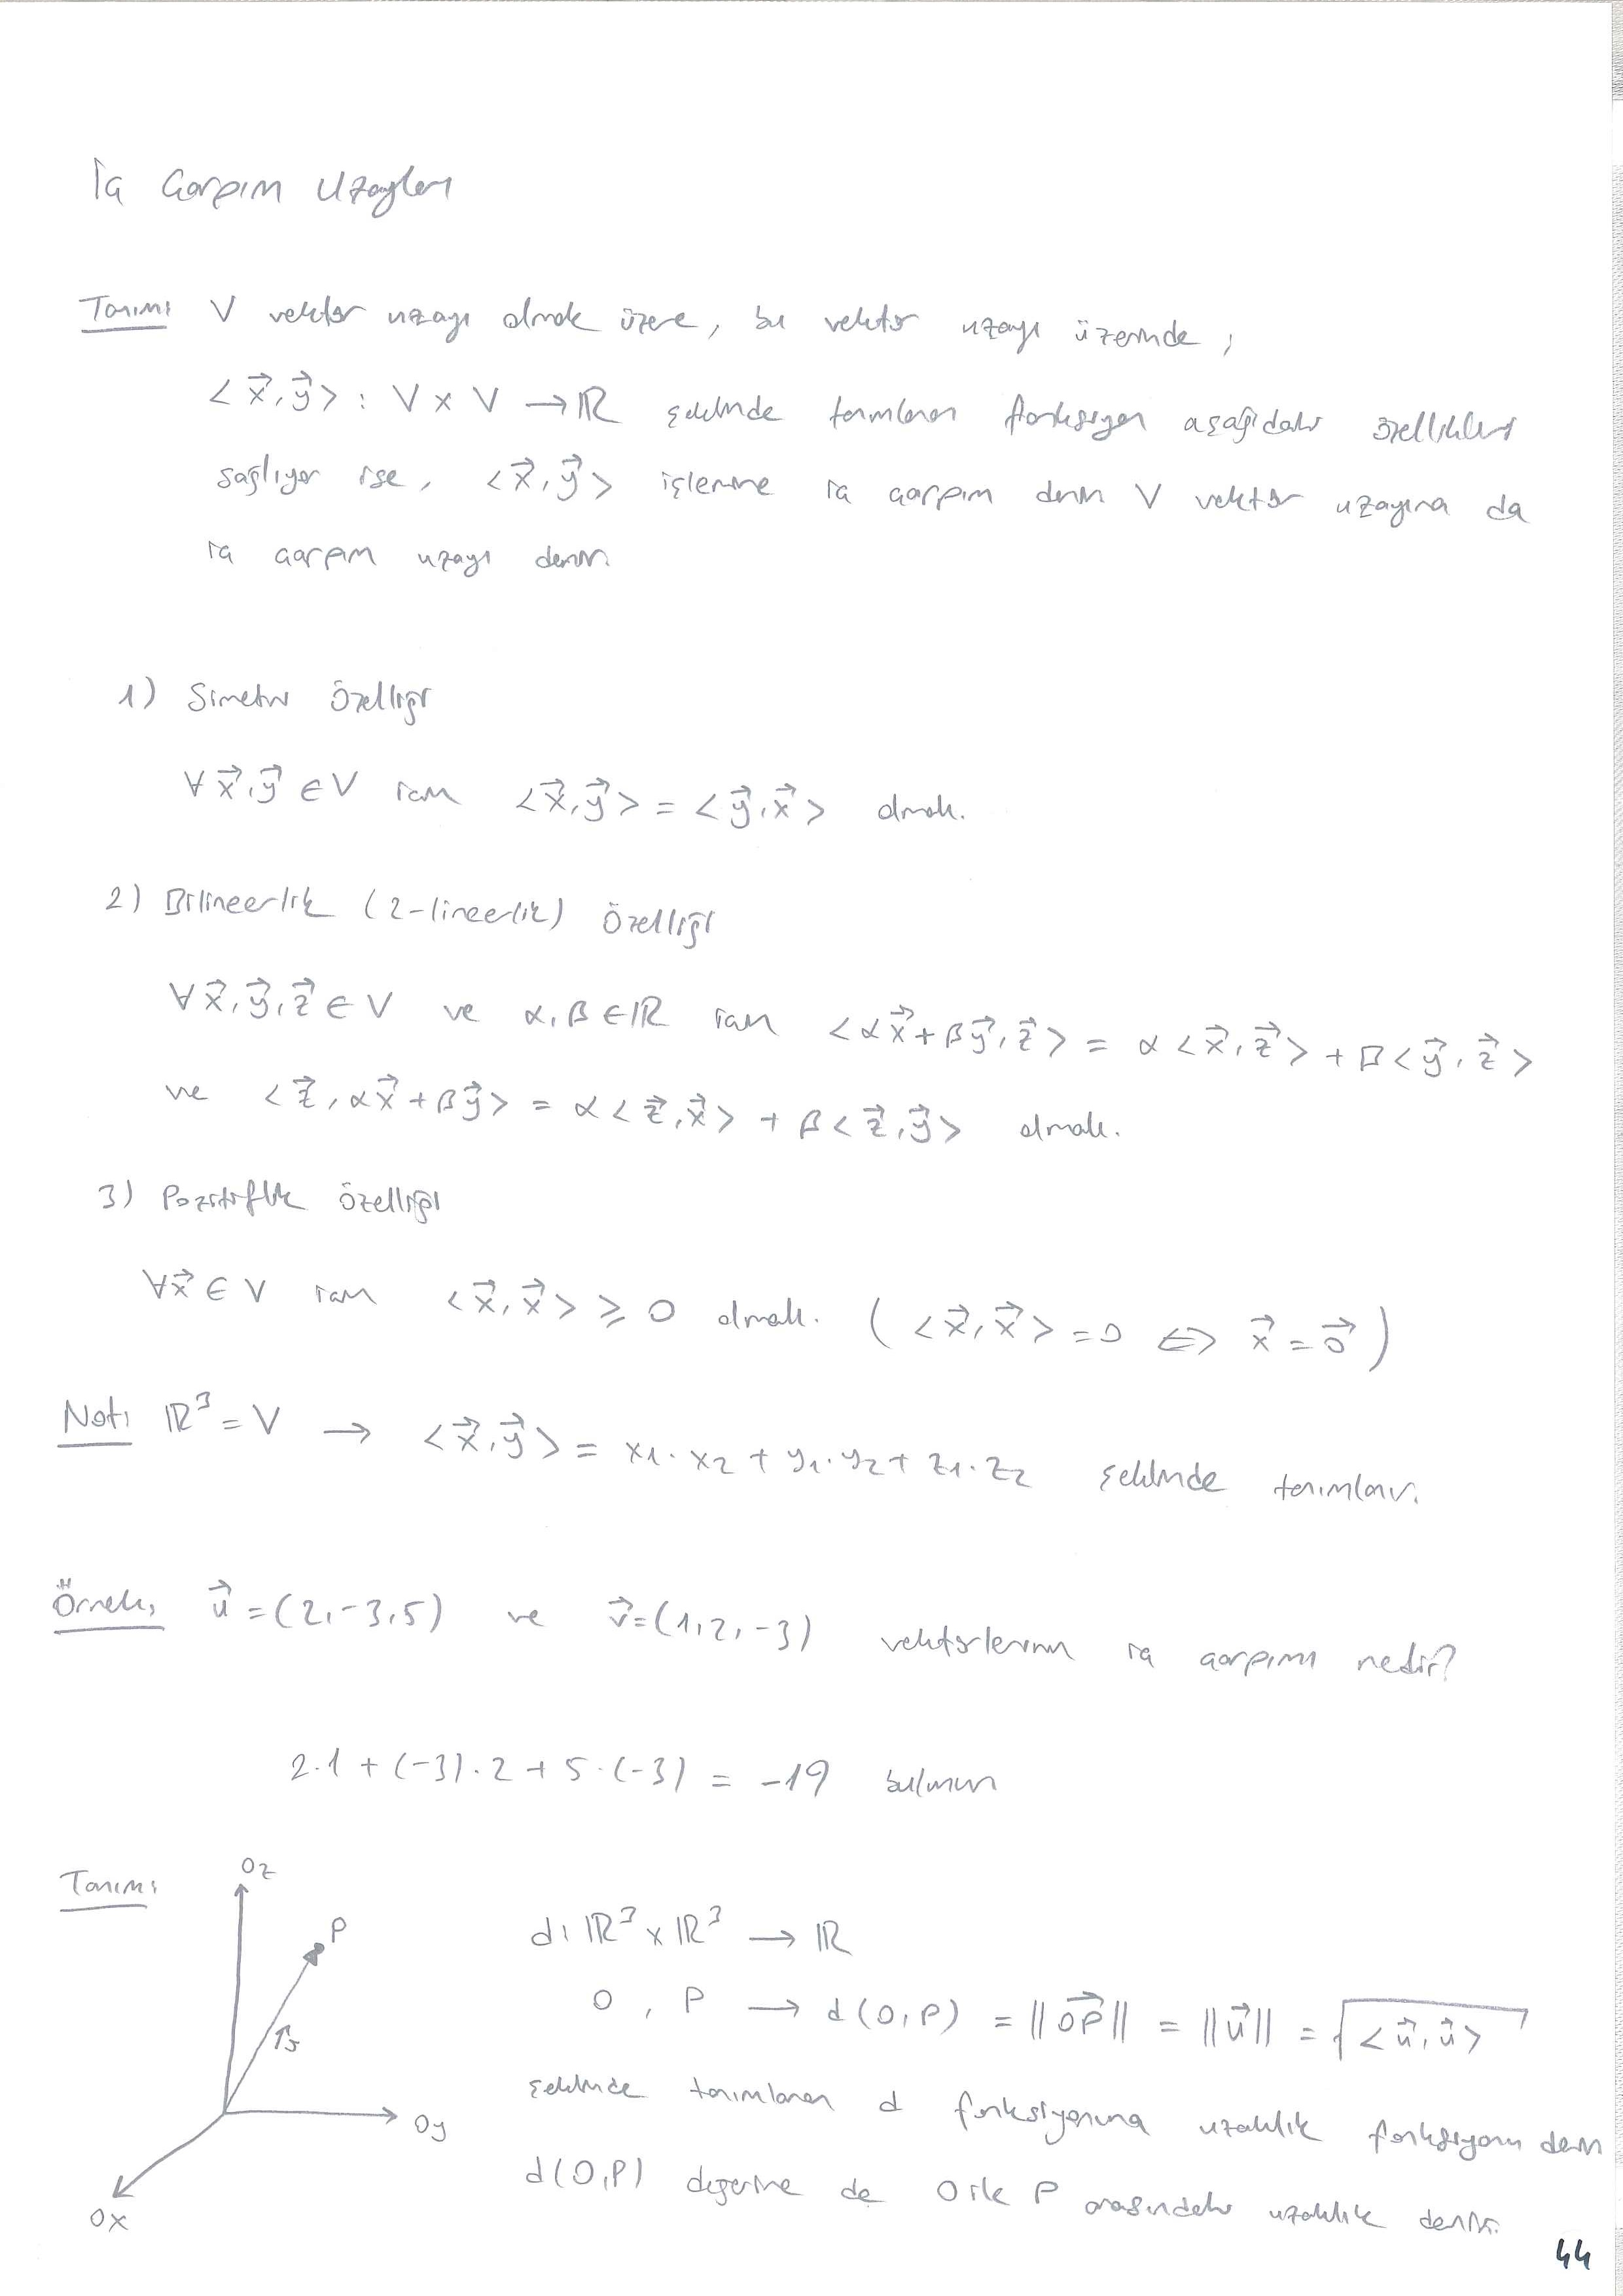 İç Çarpım Uzayları
Tanım: V vektör uzayı olmak üzere, bu vektör uzayı üzerinde,
<x⃗,y⃗> : V x V → ℝ şeklinde tanımlanan fonksiyon aşağıdaki özellikleri
sağlıyor ise, <x⃗,y⃗> işlemine iç çarpım denir V vektör uzayına da
iç çarpım uzayı denir.
1) Simetri Özelliği
∀ x⃗,y⃗ ∈ V için <x⃗,y⃗> = <y⃗,x⃗> olmalı.
2) Bilineerlik (2-lineerlik) Özelliği
∀ x⃗,y⃗,z⃗ ∈ V ve α,β ∈ ℝ için <αx⃗+βy⃗,z⃗> = α<x⃗,z⃗> + β<y⃗,z⃗>
ve <z⃗,αx⃗+βy⃗> = α<z⃗,x⃗> + β<z⃗,y⃗> olmalı.
3) Pozitiflik özelliği
∀x⃗ ∈ V için <x⃗,x⃗> ≥ 0 olmalı. (<x⃗,x⃗> = 0 ⇔ x⃗ = 0⃗)
Not: ℝ³ = V → <x⃗,y⃗> = x₁.x₂ + y₁.y₂ + z₁.z₂ şeklinde tanımlanır.
Örnek: u⃗ = (2,-3,5) ve v⃗ = (1,2,-3) vektörlerinin iç çarpımı nedir?
2.1 + (-3).2 + 5.(-3) = -19 bulunur
Tanım:
Oz
P
Oy
Ox
d: ℝ³ x ℝ³ → ℝ
O , P → d(O,P) = ||OP⃗|| = ||u⃗|| = √<u⃗,u⃗>
şeklinde tanımlanan d fonksiyonuna uzaklık fonksiyonu denir
d(O,P) değerine de O ile P arasındaki uzaklık denir.
44